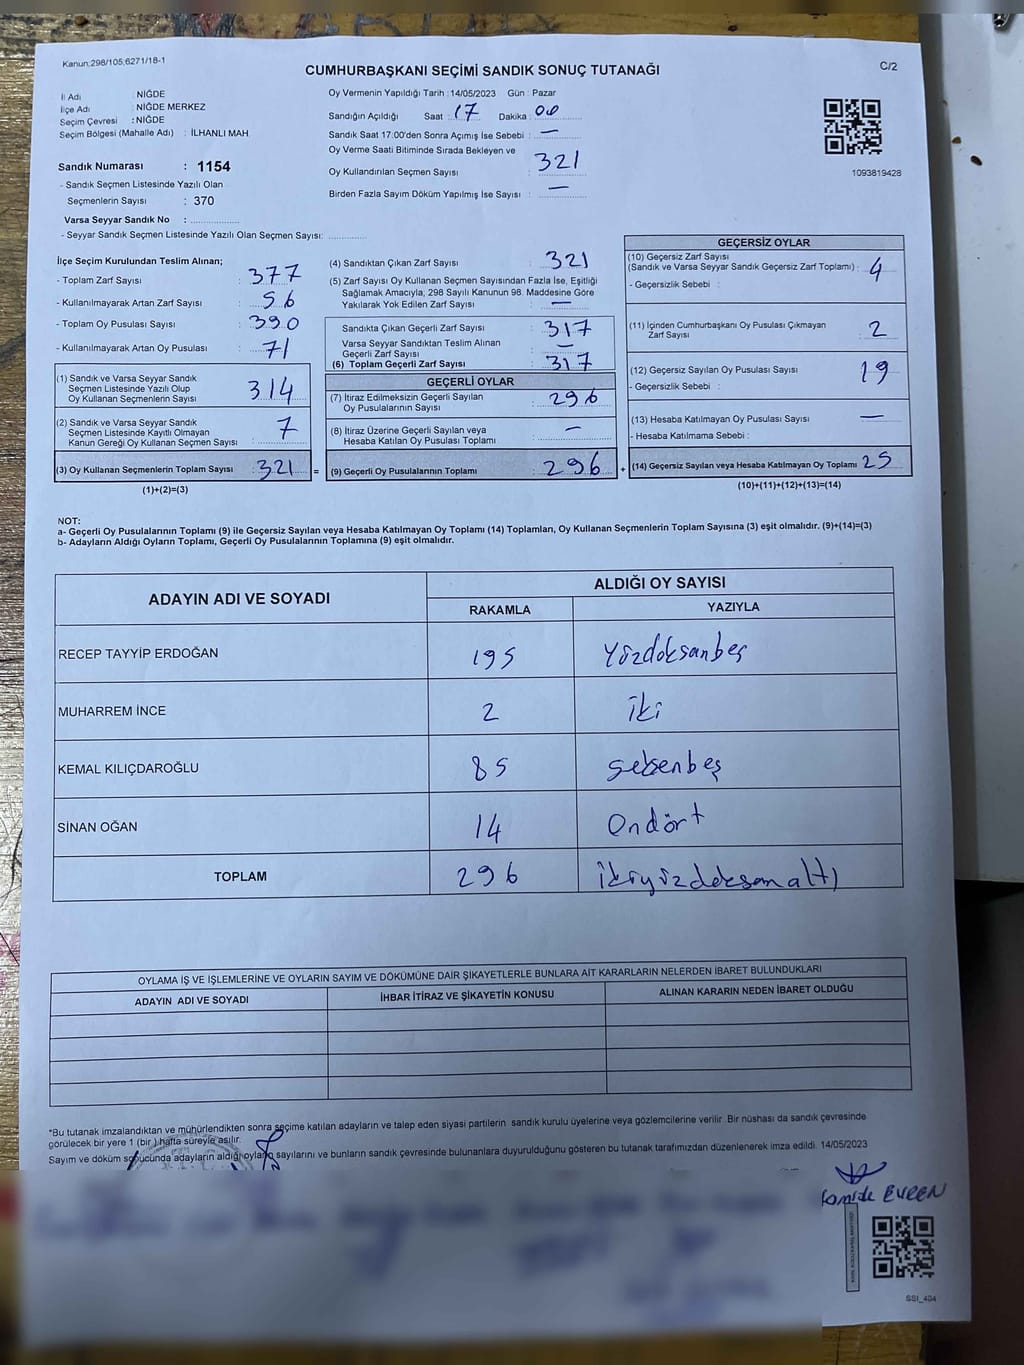 Kanun:298/105;6271/18-1
CUMHURBAŞKANI SEÇİMİ SANDIK SONUÇ TUTANAĞI
C/2
İl Adı : NİĞDE
İlçe Adı : NİĞDE MERKEZ
Seçim Çevresi : NİĞDE
Seçim Bölgesi (Mahalle Adı) : İLHANLI MAH
Sandık Numarası : 1154
- Sandık Seçmen Listesinde Yazılı Olan
Seçmenlerin Sayısı : 370
Varsa Seyyar Sandık No : ................
- Seyyar Sandık Seçmen Listesinde Yazılı Olan Seçmen Sayısı: ............
Oy Vermenin Yapıldığı Tarih : 14/05/2023 Gün : Pazar
Sandığın Açıldığı Saat 17 Dakika : 00
Sandık Saat 17:00'den Sonra Açımış İse Sebebi : —
Oy Verme Saati Bitiminde Sırada Bekleyen ve
Oy Kullandırılan Seçmen Sayısı : 321
Birden Fazla Sayım Döküm Yapılmış İse Sayısı : —
1093819428
İlçe Seçim Kurulundan Teslim Alınan;
- Toplam Zarf Sayısı : 377
- Kullanılmayarak Artan Zarf Sayısı : 56
- Toplam Oy Pusulası Sayısı : 390
- Kullanılmayarak Artan Oy Pusulası : 71
(1) Sandık ve Varsa Seyyar Sandık
Seçmen Listesinde Yazılı Olup
Oy Kullanan Seçmenlerin Sayısı : 314
(2) Sandık ve Varsa Seyyar Sandık
Seçmen Listesinde Kayıtlı Olmayan
Kanun Gereği Oy Kullanan Seçmen Sayısı : 7
(3) Oy Kullanan Seçmenlerin Toplam Sayısı : 321 =
(1)+(2)=(3)
(4) Sandıktan Çıkan Zarf Sayısı : 321
(5) Zarf Sayısı Oy Kullanan Seçmen Sayısından Fazla İse, Eşitliği
Sağlamak Amacıyla, 298 Sayılı Kanunun 98. Maddesine Göre
Yakılarak Yok Edilen Zarf Sayısı : —
Sandıkta Çıkan Geçerli Zarf Sayısı : 317
Varsa Seyyar Sandıktan Teslim Alınan
Geçerli Zarf Sayısı : —
(6) Toplam Geçerli Zarf Sayısı : 317
GEÇERLİ OYLAR
(7) İtiraz Edilmeksizin Geçerli Sayılan
Oy Pusulalarının Sayısı : 296
(8) İtiraz Üzerine Geçerli Sayılan veya
Hesaba Katılan Oy Pusulası Toplamı : —
(9) Geçerli Oy Pusulalarının Toplamı : 296 +
GEÇERSİZ OYLAR
(10) Geçersiz Zarf Sayısı
(Sandık ve Varsa Seyyar Sandık Geçersiz Zarf Toplamı) : 4
- Geçersizlik Sebebi :
(11) İçinden Cumhurbaşkanı Oy Pusulası Çıkmayan
Zarf Sayısı : 2
(12) Geçersiz Sayılan Oy Pusulası Sayısı : 19
- Geçersizlik Sebebi :
(13) Hesaba Katılmayan Oy Pusulası Sayısı : —
- Hesaba Katılmama Sebebi :
(14) Geçersiz Sayılan veya Hesaba Katılmayan Oy Toplamı : 25
(10)+(11)+(12)+(13)=(14)
NOT:
a- Geçerli Oy Pusulalarının Toplamı (9) ile Geçersiz Sayılan veya Hesaba Katılmayan Oy Toplamı (14) Toplamları, Oy Kullanan Seçmenlerin Toplam Sayısına (3) eşit olmalıdır. (9)+(14)=(3)
b- Adayların Aldığı Oyların Toplamı, Geçerli Oy Pusulalarının Toplamına (9) eşit olmalıdır.
ADAYIN ADI VE SOYADI
ALDIĞI OY SAYISI
RAKAMLA YAZIYLA
RECEP TAYYİP ERDOĞAN 195 Yüzdoksanbeş
MUHARREM İNCE 2 iki
KEMAL KILIÇDAROĞLU 85 seksenbeş
SİNAN OĞAN 14 Ondört
TOPLAM 296 ikiyüzdoksanaltı
OYLAMA İŞ VE İŞLEMLERİNE VE OYLARIN SAYIM VE DÖKÜMÜNE DAİR ŞİKAYETLERLE BUNLARA AİT KARARLARIN NELERDEN İBARET BULUNDUKLARI
ADAYIN ADI VE SOYADI İHBAR İTİRAZ VE ŞİKAYETİN KONUSU ALINAN KARARIN NEDEN İBARET OLDUĞU
*Bu tutanak imzalandıktan ve mühürlendikten sonra seçime katılan adayların ve talep eden siyasi partilerin sandık kurulu üyelerine veya gözlemcilerine verilir. Bir nüshası da sandık çevresinde
görülecek bir yere 1 (bir ) hafta süreyle asılır.
Sayım ve döküm sonucunda adayların aldığı oyların sayılarını ve bunların sandık çevresinde bulunanlara duyurulduğunu gösteren bu tutanak tarafımızdan düzenlenerek imza edildi. 14/05/2023
EVREN
SSI_404